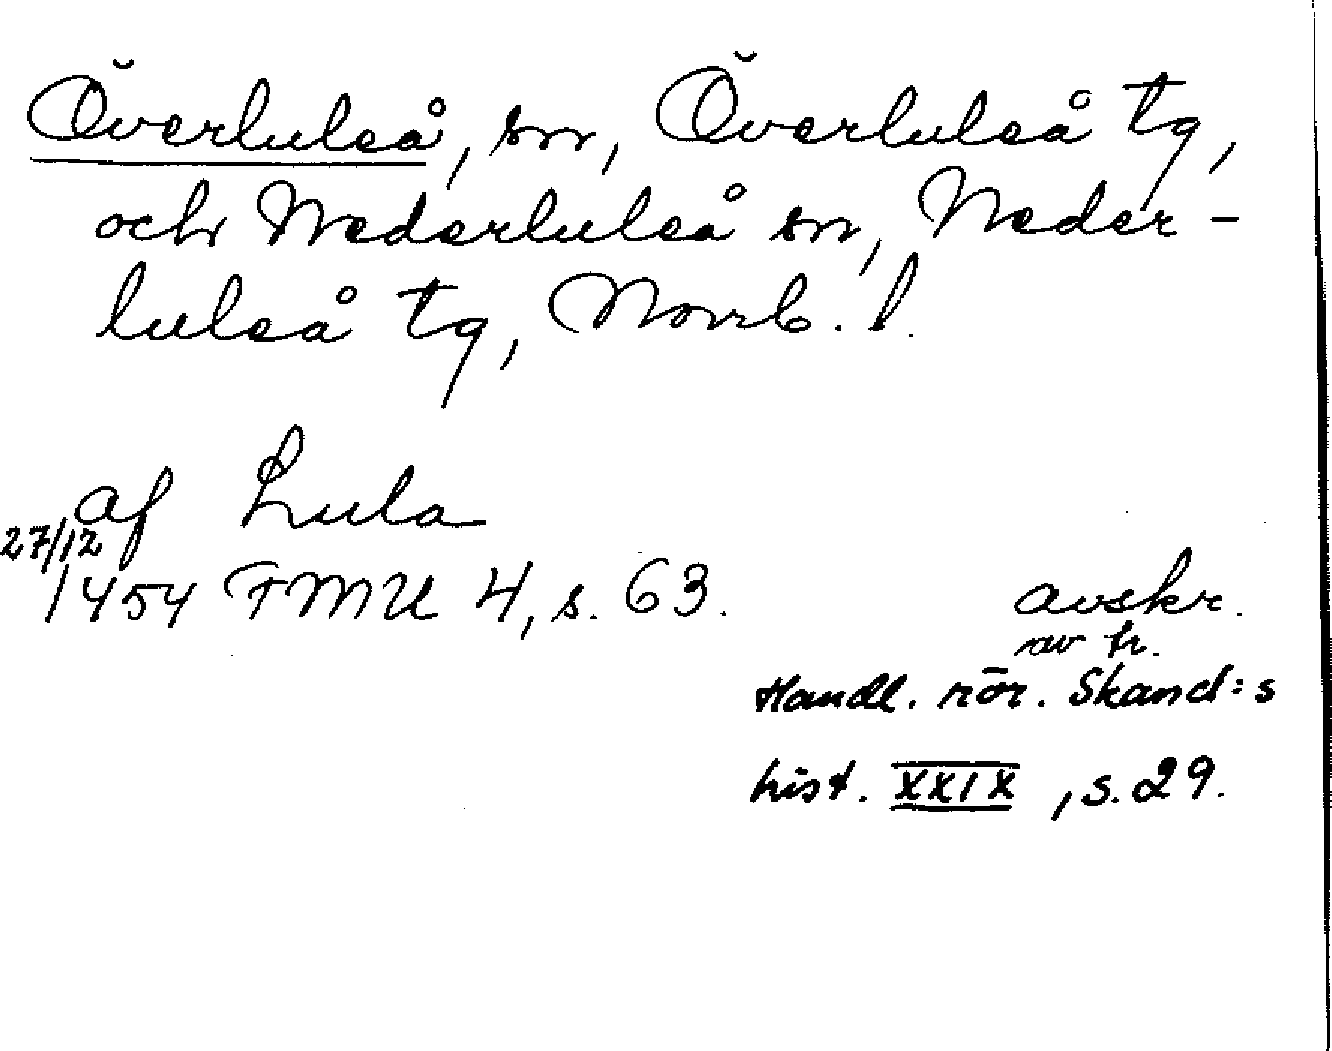 Överluleå, sn, Överluleå tg,
och Nederluleå sn, Neder-
luleå tg, Norrb. l.
af Lula
27/12
1454 FMU 4, s. 63.
avskr.
av tr.
Handl. rör. Skand:s
hist. XXIX, s. 29.